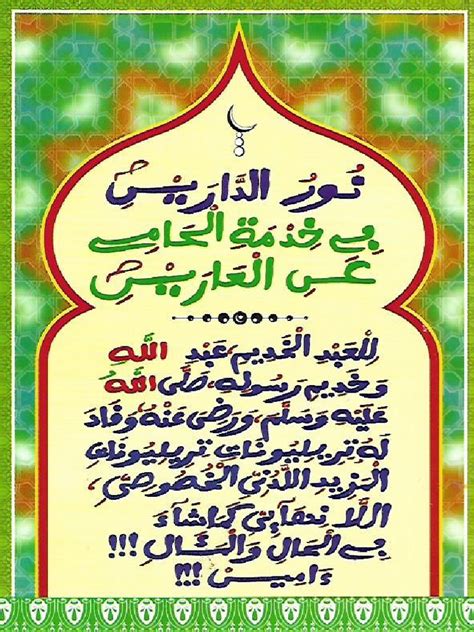 نُورُ الدَّارَيْنِ
فِي خِدْمَةِ الْحَامِي
عَنِ الْعَارَيْنِ
لِلْعَبْدِ الْخَدِيمِ، عَبْدِ اللَّهِ
وَخَدِيمِ رَسُولِهِ، صَلَّى اللَّهُ
عَلَيْهِ وَسَلَّمَ، وَرَضِيَ عَنْهُ وَقَادَ
لَهُ تريليونات تريليونات
الْمَزِيد اللَّدُنِّي الْخُصُوصِي،
اللَّا نِهَآئِي كَمَا شَآءَ
فِي الْحَالِ وَالْمَآلِ !!!
ءَامِين !!!